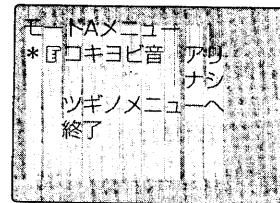 モードAメニュー
*☞コキヨビ音 アリ
ナシ
ツギノメニューへ
終了